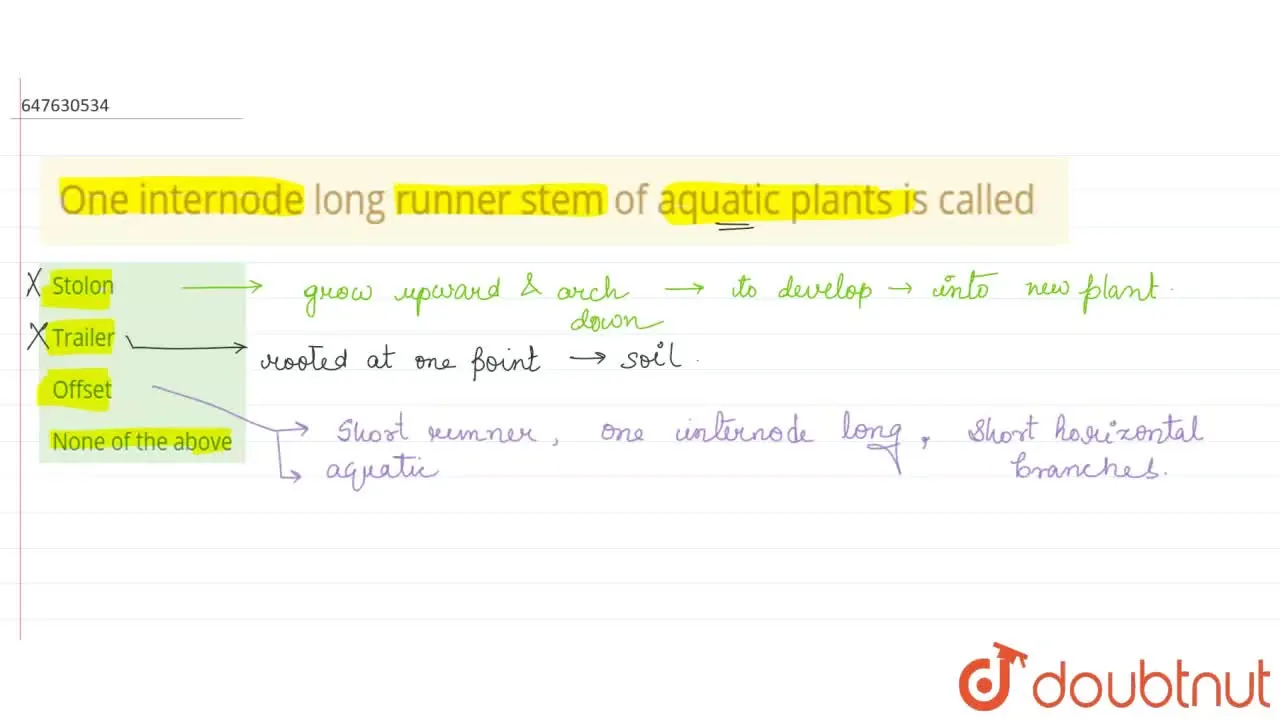 647630534
One internode long runner stem of aquatic plants is called
X Stolon → grow upward & arch → to develop → into new plant.
down
X Trailer → rooted at one point → soil.
Offset
→ Short runner, one internode long, short horizontal
None of the above
→ aquatic branches.
doubtnut